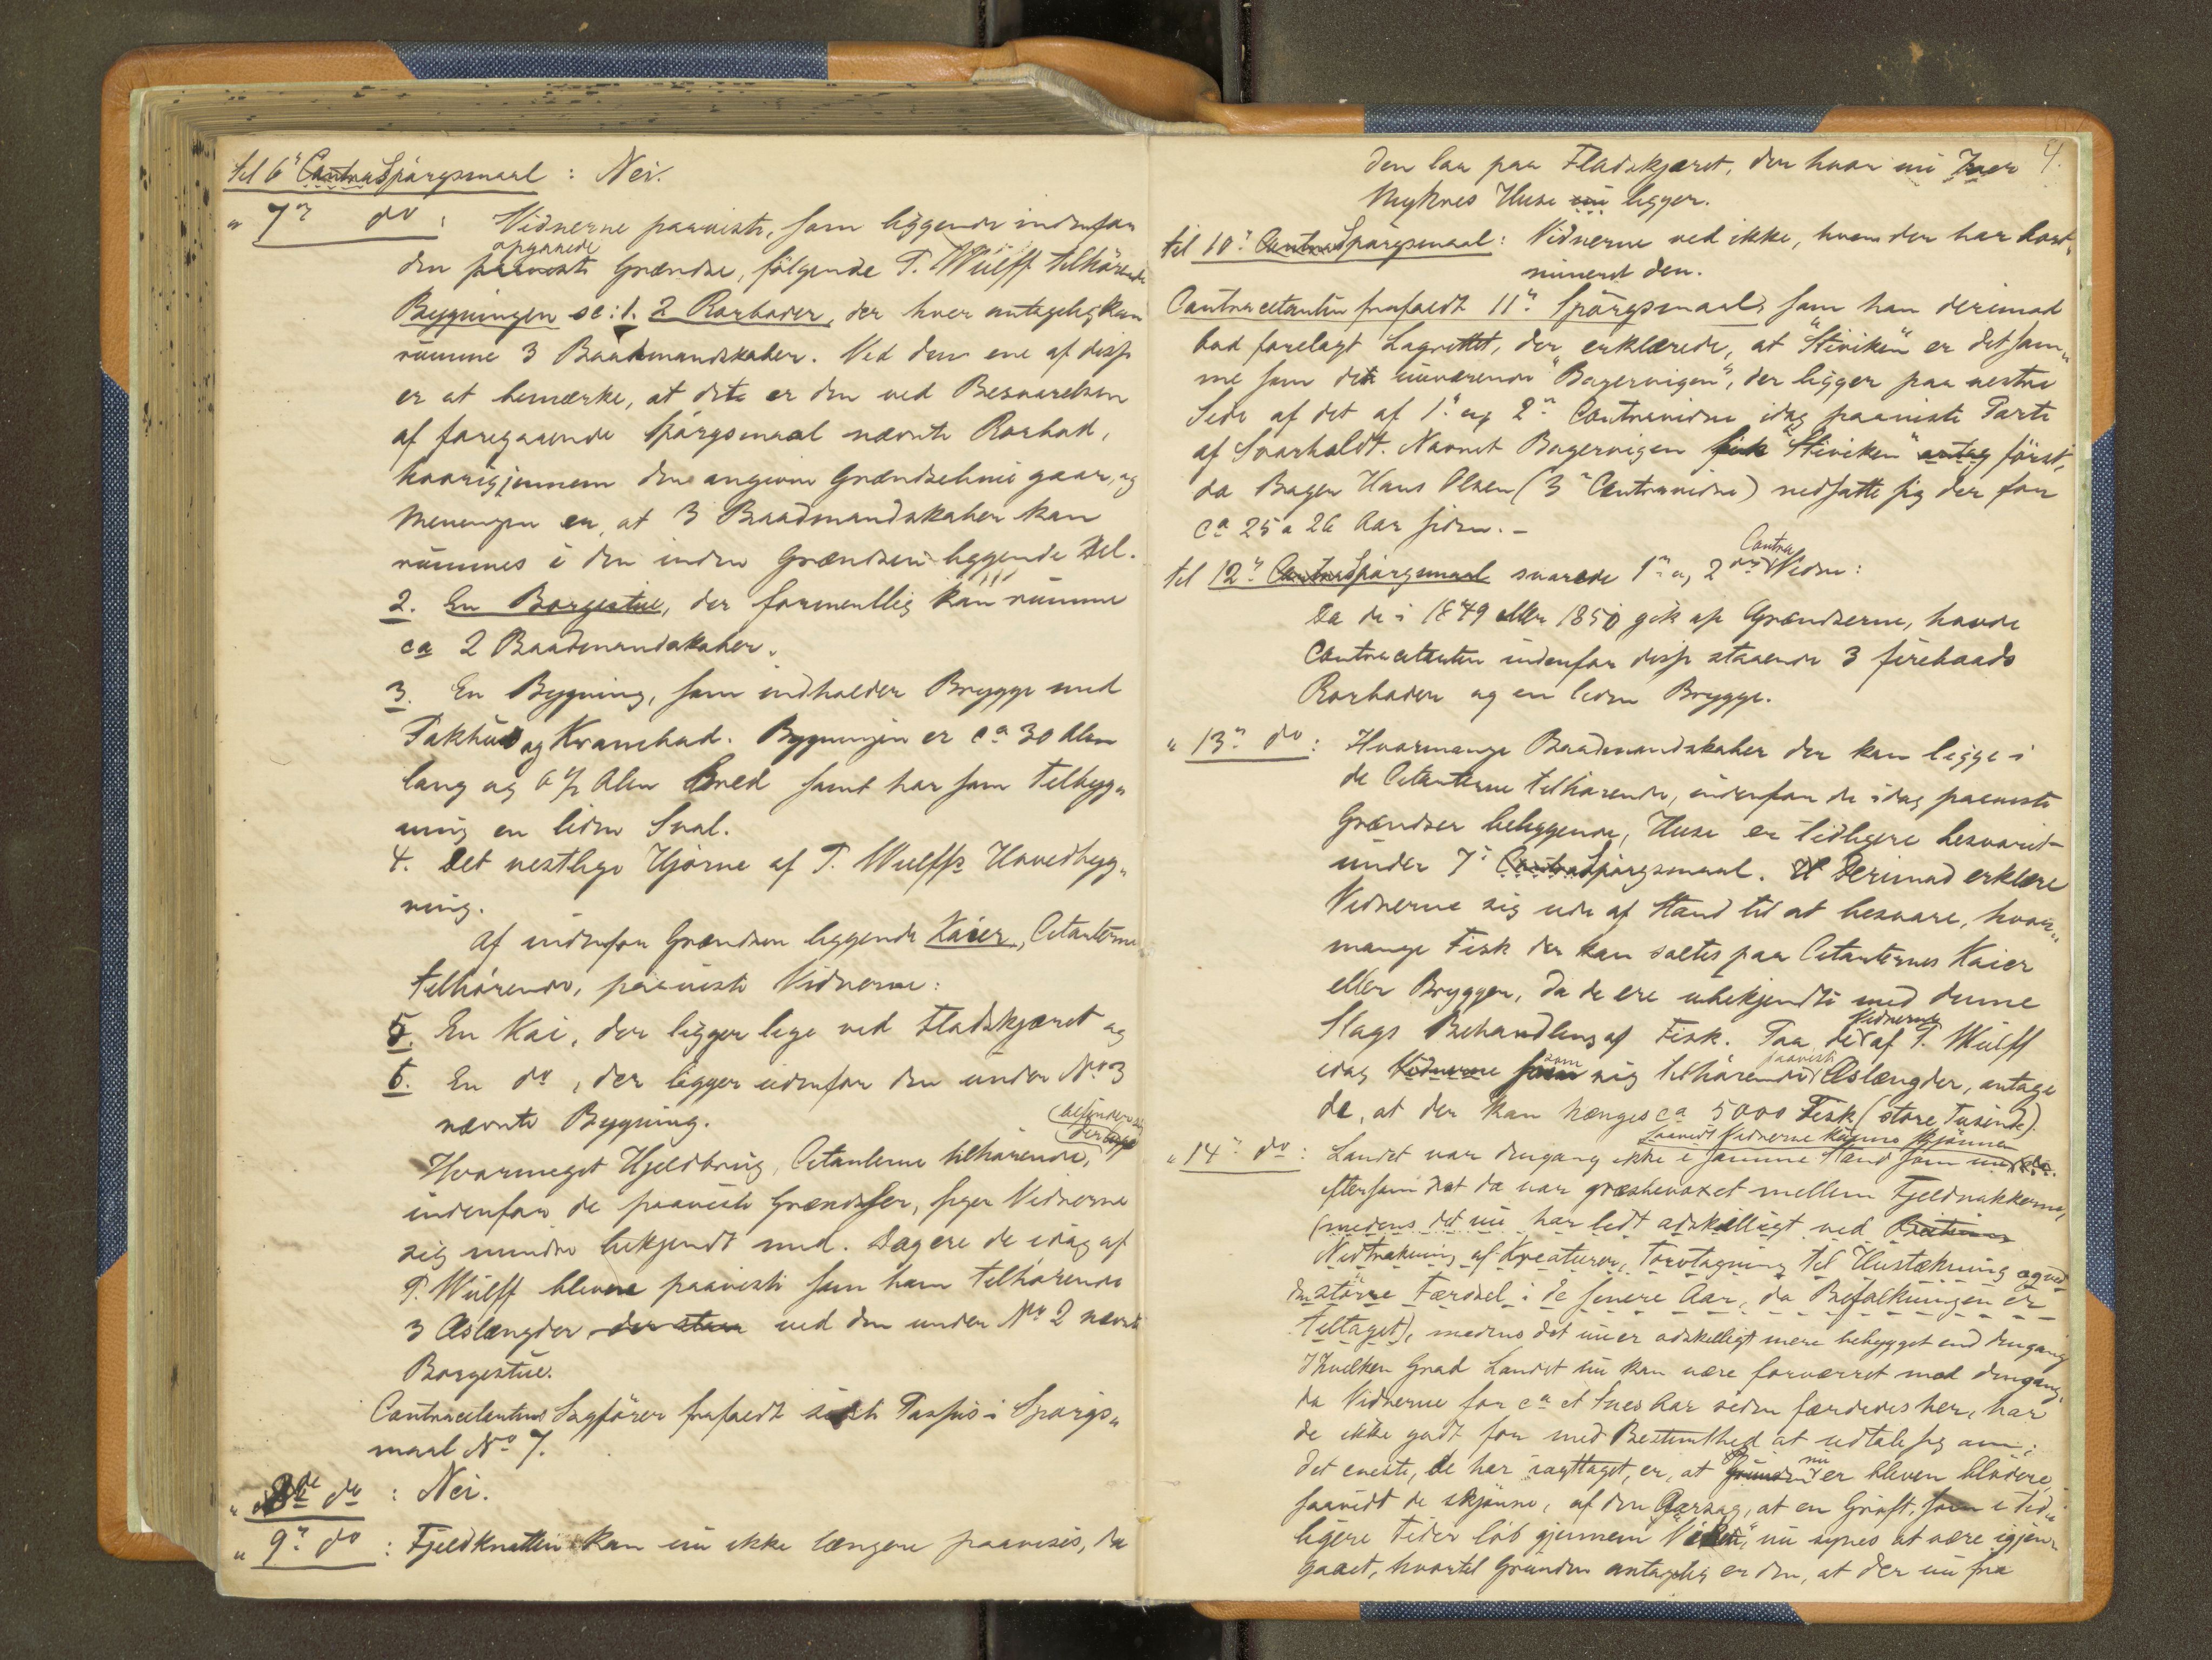 til 6" Contraspørgsmaal : Nei.
" 7" do : Vidnerne paaviste, som liggende indenfor
opgaaede
den paaviste Grændse, følgende T. Wulff tilhørende
Bygninger se: 1. 2 Rorboder, der hver antagelig kan
rumme 3 Baadmandskaber. Ved den ene af disse
er at bemærke, at dette er den ved Besvarelsen
af foregaaende Spørgsmaal nævnte Rorbod,
hvorigjennem den angivne Grændselinie gaar, og
Meningen er, at 3 Baadmandskaber kan
rummes i den inden Grændsen liggende Del.
2. En Borgestue, der formentlig kan rumme
ca 2 Baadmandskaber.
3. En Bygning, som indholder Brygge med
Pakhus og Krambod. Bygningen er ca 30 Alen
lang og 6 1/2 Alen bred samt har som Tilbyg„
ning en liden Sval.
4. Det vestlige Hjørne af T. Wulffs Hovedbyg„
ning.
Af indenfor Grændsen liggende Kaier, Citanterne
tilhørende, paaviste Vidnerne:
5. En Kai, der ligger lige ved Fladskjæret og
6. En do, der ligger udenfor den under No 3
nævnte Bygning.
befinder sig
der ligge
Hvormeget Hjeldbrug, Citanterne tilhørende,
indenfor de paaviste Grændser, siger Vidnerne
sig mindre bekjendt med. Dog ere de idag af
T. Wulff blevne paavist som ham tilhørende
3 Æslængder der staar ved den under No 2 nævnte
Borgestue.
Contracitantens Sagfører frafaldt sidste Passus i Spørgs„
maal No 7.
" 8de do : Nei.
" 9" do : Fjeldknatten kan nu ikke længere paavises, da
4.
den laa paa Fladskjæret, der hvor nu Iver
Myknes Huse nu ligger.
til 10" Contraspørgsmaal: Vidnerne ved ikke, hvem der har bort„
mineret den.
Contracitanten frafaldt 11" Spørgsmaal, som han derimod
bad forelagt Lagrettet, der erklærede, at "Stiviken" er det sam„
me som det nuværende "Bagervigen", der ligger paa vestre
Side af det af 1" og 2" Contravidne idag paaviste Parti
af Svarholdt. Navnet Bagervigen fik "Stiviken" antog først,
da Bager Hans Olsen (3" Contravidne) nedsatte sig der for
ca 25 a 26 Aar siden. -
Contra
til 12" Contraspørgsmaal svarede 1" og 2det Vidne:
Da de i 1849 eller 1850 gik op Grændserne, havde
Contracitanten indenfor disse staaende 3 firebaads
Rorboder og en liden Brygge.
" 13" do : Hvormange Baadmandskaber der kan ligge i
de Citanterne tilhørende, indenfor de idag paaviste
Grændser beliggende, Huse er tidligere besvaret
under 7" Contraspørgsmaal. Derimod erklære
Vidnerne sig ude af Stand til at besvare, hvor„
mange Fisk der kan saltes paa Citanternes Kaier
eller Brygger, da de ere ubekjendte med denne
Slags Behandling af Fisk. Paa de Vidnerne af T. Wulff
idag Vidnerne som sig tilhørende paaviste Æslængder, antage
de, at der kan hænges ca 5000 Fisk (store Tusinde).
saavidt Vidnerne kunne skjønne
" 14" do : Landet var dengang ikke i samme Stand som nu
eftersom det da var græsbevoxet mellem Fjeldnakkerne,
(medens det nu har lidt adskilligt ved
Nedtrækning af Kreaturer, Torvtagning til Hustækning og ved
den større Færdsel i de senere Aar, da Befolkningen er
tiltaget), medens det nu er adskilligt mere bebygget end dengang
I hvilken Grad Landet nu kan være forværret mod dengang,
da Vidnerne for ca et Snes Aar siden færdedes her, har
de ikke godt for med Bestemthed at udtale sig om;
det eneste, de har iagttaget, er, at Grunden nu er bleven blødere,
saavidt de skjønne, af den Aarsag, at en Grøft, som i tid„
ligere Tider løb gjennem nu synes at være igjen„
gaaet, hvortil Grunden antagelig er den, at der nu fra